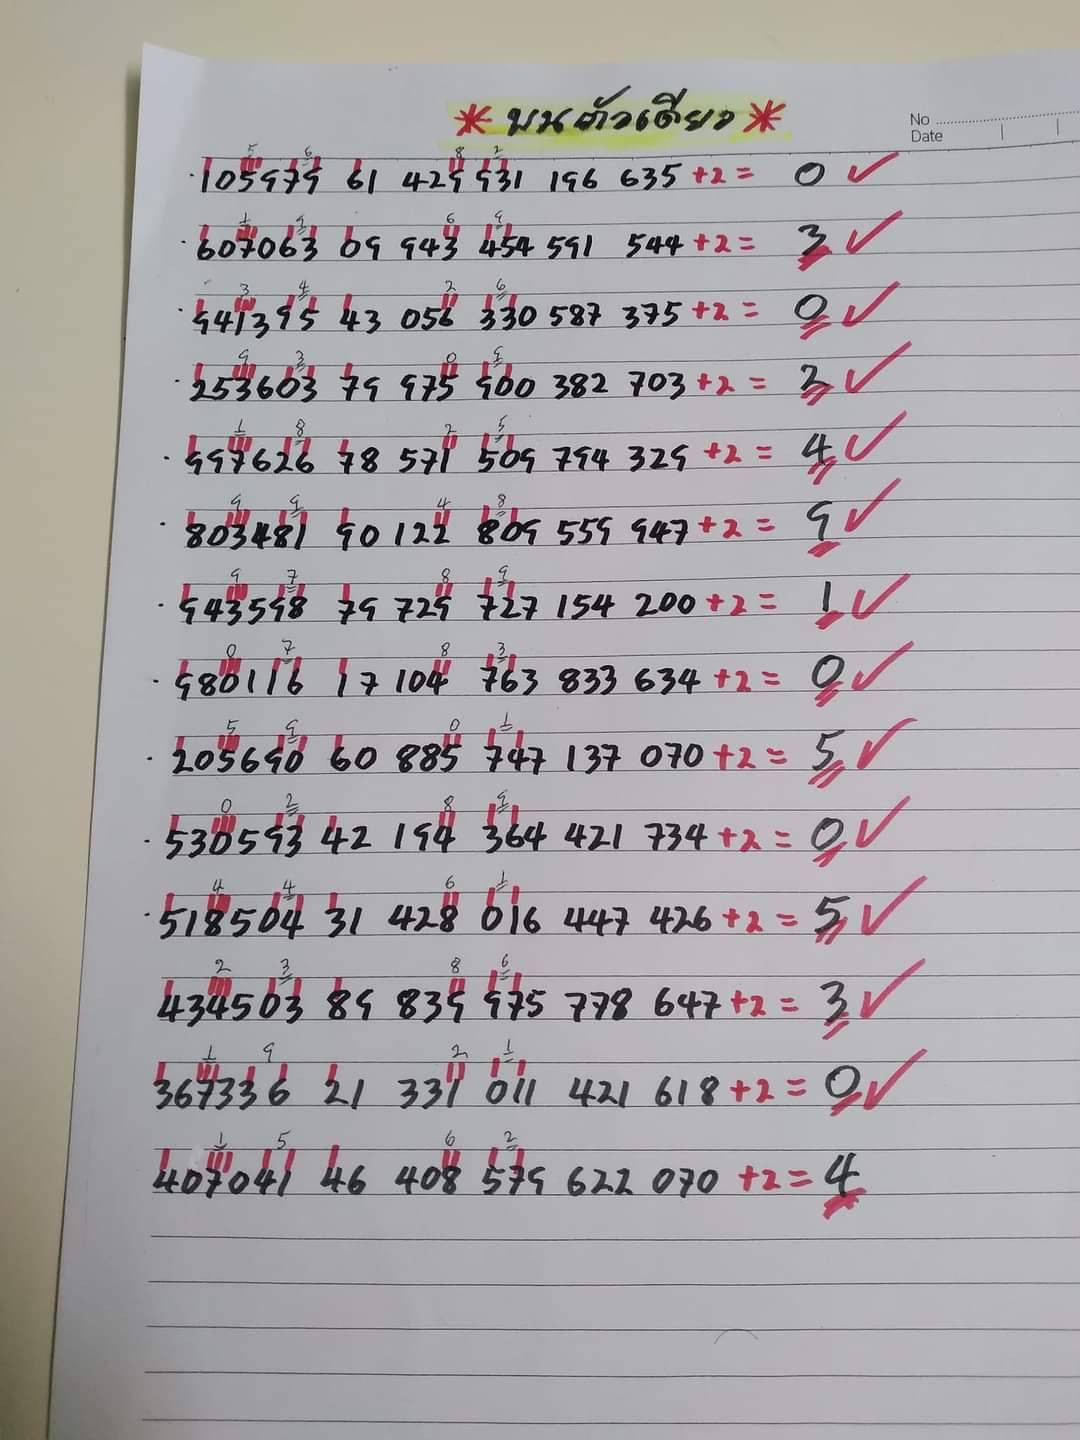 * บนตัวเดียว *
No
Date
5 6 8 2
105979 61 429 931 196 635 +2 = 0 ✓
1 9 6 9
607063 09 943 454 591 544 +2 = 3 ✓
3 4 2 6
941395 43 056 330 587 375 +2 = 0 ✓
9 3 0 9
253603 79 975 900 382 703 +2 = 2 ✓
1 8 2 5
997626 78 571 509 794 329 +2 = 4 ✓
9 9 4 8
803481 90 122 809 559 947 +2 = 9 ✓
9 7 8 9
943598 79 729 727 154 200 +2 = 1 ✓
0 7 8 3
980116 17 104 763 833 634 +2 = 0 ✓
5 9 0 1
205690 60 885 747 137 070 +2 = 5 ✓
0 2 8 9
530593 42 194 364 421 734 +2 = 0 ✓
4 4 6 1
518504 31 428 016 447 426 +2 = 5 ✓
2 3 8 6
434503 89 839 975 778 647 +2 = 3 ✓
1 9 2 1
367336 21 331 011 421 618 +2 = 0 ✓
1 5 6 2
407041 46 408 579 622 070 +2 = 4